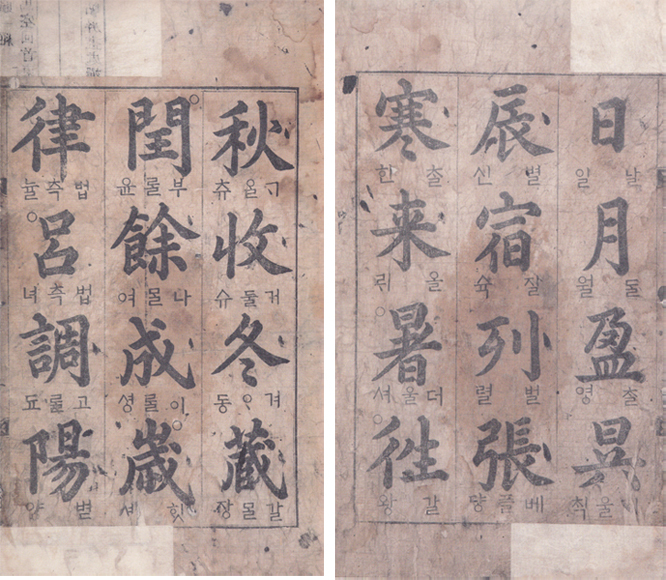 日
날 일
月
돌 월
盈
찰 영
昃
울 칙
辰
별 신
宿
잘 슉
列
벌 렬
張
베플 댱
寒
찰 한
来
올 릐
暑
더울 셔
徃
갈 왕
秋
츄
收
거둘 슈
冬
동
藏
갈몰 장
閏
부롤 윤
餘
나몰 여
成
이롤 셩
歲
힛 셰
律
법측 뉼
呂
법측 녀
調
고롤 됴
陽
볕 양